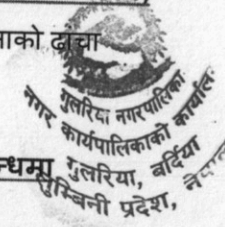 नाको ढांचा
गुलरिया नगरपालिका
नगर कार्यपालिकाको कार्यालय
न्धमा गुलरिया, बर्दिया
लुम्बिनी प्रदेश, नेपाल